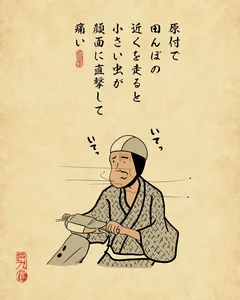 原付で
田んぼの
近くを走ると
小さい虫が
顔面に直撃して
痛い
いてっ
いてっ